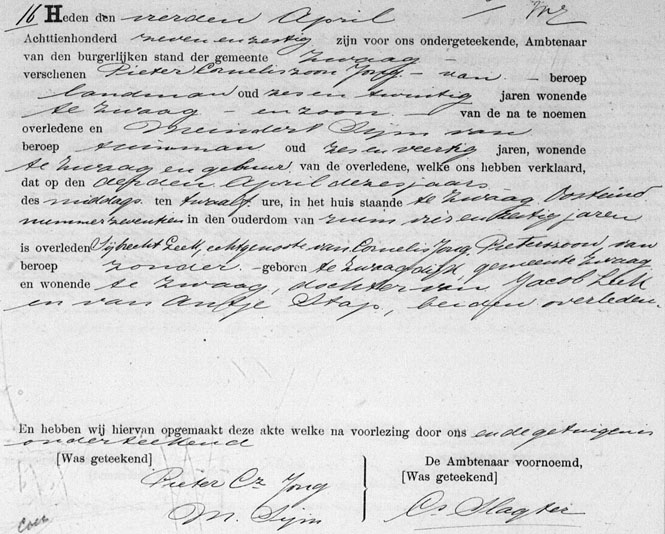 16 Heden den vierden April
Achttienhonderd zeven en zestig zijn voor ons ondergeteekende, Ambtenaar
van den burgerlijken stand der gemeente Zwaag
verschenen Pieter Corneliszoon Jong - van - beroep
landman oud zes en twintig jaren wonende
te Zwaag en zoon - van de na te noemen
overledene en Meindert Sijm van
beroep tuinman oud zes en veertig jaren, wonende
te Zwaag en gebuur van de overledene, welke ons hebben verklaard,
dat op den derden April dezes jaars
des middags ten twaalf ure, in het huis staande te Zwaag Oosteind
nummer zeventien in den ouderdom van ruim vier en zestig jaren
is overleden Sijbrecht Leek, echtgenoote van Cornelis Jong Pieterszoon, van
beroep zonder - geboren te Zwaagdijk, gemeente Zwaag
en wonende te Zwaag, dochter van Jacob Leek
en van Antje Stap, beiden overleden.
En hebben wij hiervan opgemaakt deze akte welke na voorlezing door ons en de getuigen is
onderteekend
[Was geteekend]
Pieter Cz Jong
M. Sijm
De Ambtenaar voornoemd,
[Was geteekend]
Cs Slagter